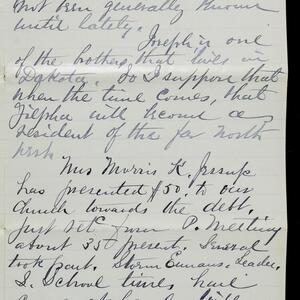 not been generally known
until lately.
Joseph is one
of the brothers that lives in
Dakota. So I suppose that
when the time comes, that
Zilpha will become a
resident of the far north
west.
Mrs Morris K. Jessup
has presented $50. to our
church towards the debt.
Just ret' from P. Meeting
about 35 present. Several
took part. Storm Emans, Leader.
S. School times have